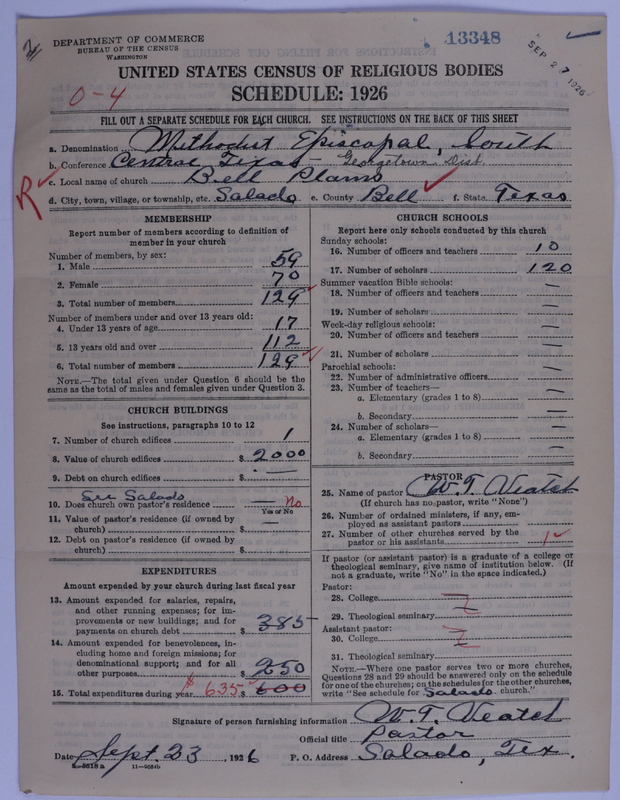 DEPARTMENT OF COMMERCE
BUREAU OF THE CENSUS
WASHINGTON
13348
SEP 27 1926
UNITED STATES CENSUS OF RELIGIOUS BODIES
0-4
SCHEDULE: 1926
FILL OUT A SEPARATE SCHEDULE FOR EACH CHURCH. SEE INSTRUCTIONS ON THE BACK OF THIS SHEET
a. Denomination Methodist Episcopal, South
b. Conference Central Texas - Georgetown Dist
R
c. Local name of church Bell Plains
d. City, town, village, or township, etc. Salado e. County Bell f. State Texas
MEMBERSHIP
Report number of members according to definition of member in your church
Number of members, by sex:
1. Male 59
2. Female 70
3. Total number of members 129
Number of members under and over 13 years old:
4. Under 13 years of age 17
5. 13 years old and over 112
6. Total number of members 129
NOTE.—The total given under Question 6 should be the
same as the total of males and females given under Question 3.
CHURCH BUILDINGS
See instructions, paragraphs 10 to 12
7. Number of church edifices 1
8. Value of church edifices $ 2000
9. Debt on church edifices $ —
See Salado
10. Does church own pastor's residence — No
Yes or No
11. Value of pastor's residence (if owned by
church) $ —
12. Debt on pastor's residence (if owned by
church) $
EXPENDITURES
Amount expended by your church during last fiscal year
13. Amount expended for salaries, repairs,
and other running expenses; for im-
provements or new buildings; and for
payments on church debt $ 385
14. Amount expended for benevolences, in-
cluding home and foreign missions; for
denominational support; and for all
other purposes $ 250
15. Total expenditures during year $ 635 $ 600
CHURCH SCHOOLS
Report here only schools conducted by this church
Sunday schools:
16. Number of officers and teachers 10
17. Number of scholars 120
Summer vacation Bible schools:
18. Number of officers and teachers —
19. Number of scholars —
Week-day religious schools:
20. Number of officers and teachers —
21. Number of scholars —
Parochial schools:
22. Number of administrative officers —
23. Number of teachers—
a. Elementary (grades 1 to 8) —
b. Secondary —
24. Number of scholars—
a. Elementary (grades 1 to 8) —
b. Secondary —
PASTOR
25. Name of pastor W. T. Veatch
(If church has no pastor, write "None")
26. Number of ordained ministers, if any, em-
ployed as assistant pastors
27. Number of other churches served by the
pastor or his assistants 1
If pastor (or assistant pastor) is a graduate of a college or
theological seminary, give name of institution below. (If
not a graduate, write "No" in the space indicated.)
Pastor:
28. College
29. Theological seminary
Assistant pastor:
30. College
31. Theological seminary
NOTE.—Where one pastor serves two or more churches,
Questions 28 and 29 should be answered only on the schedule
for one of the churches; on the schedules for the other churches,
write "See schedule for Salado church."
Signature of person furnishing information W. T. Veatch
Official title Pastor
Date Sept 23, 1926 P. O. Address Salado, Tex.
11-9651b